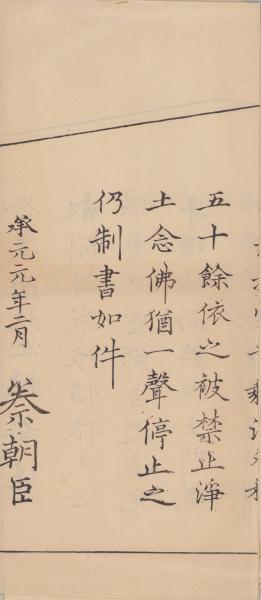 五十餘依之被禁止淨
土念佛猶一聲停止之
仍制書如件
承元元年二月
朝臣